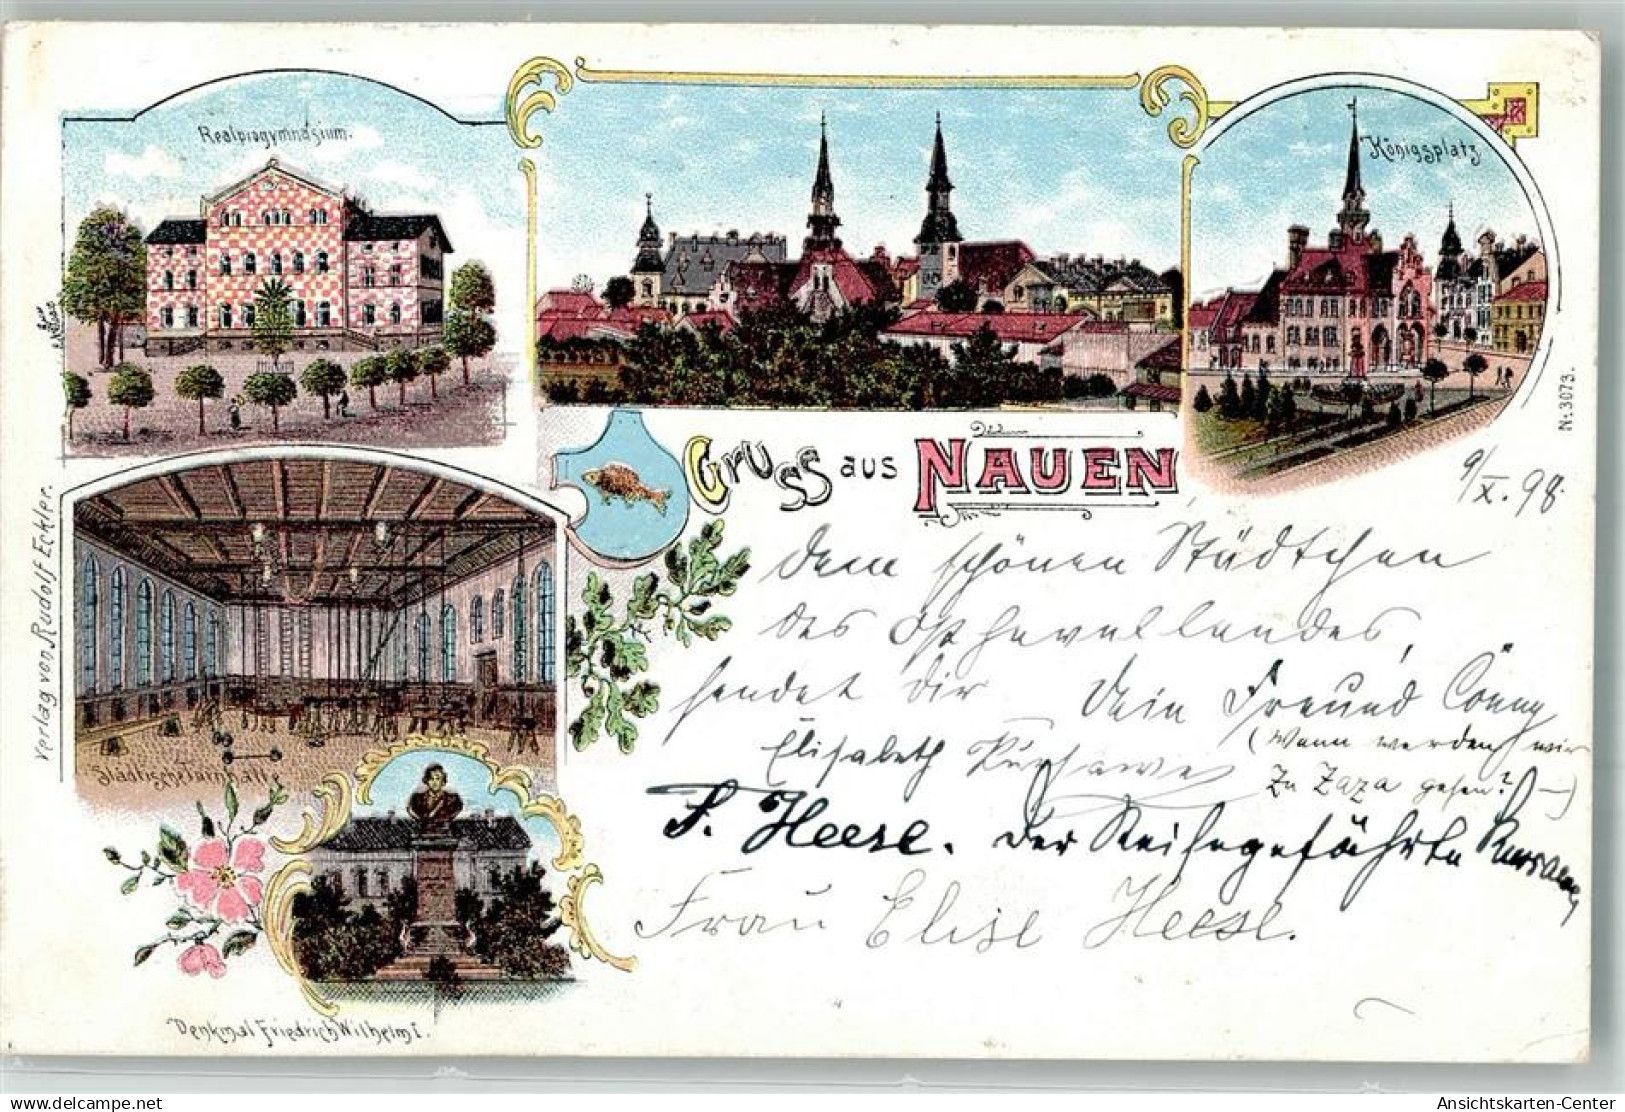 Realprogymnasium.
Königsplatz
Gruss aus NAUEN
No. 3073.
9/X. 98.
Verlag von Rudolf Eckler.
dem schönen Städtchen
des Osthavellandes,
sendet dir Dein Freund Conny
(Wann werden wir
zu Zaza gehen? —)
Elisabeth
F. Heese. Der Reisegefährte
Frau Elise Heese.
Städtische Turnhalle
Denkmal Friedrich Wilhelm I.
Ansichtskarten-Center
delcampe.net